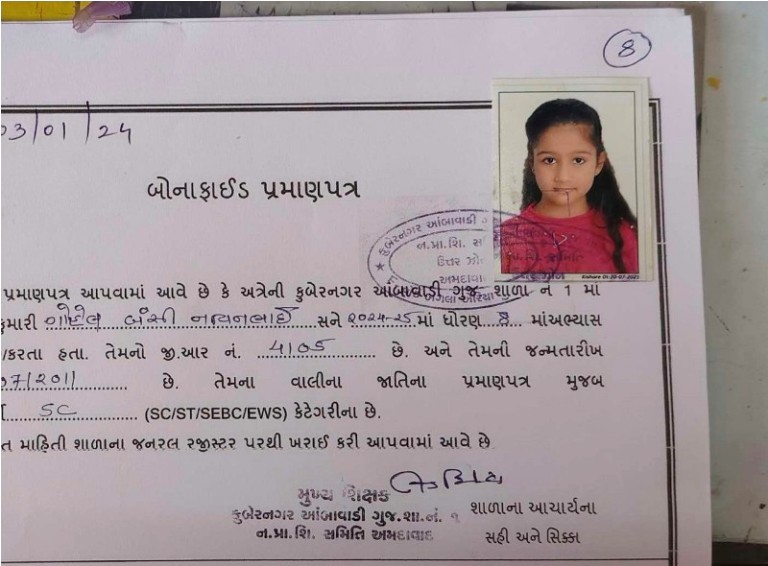 8
03/01/24
બોનાફાઈડ પ્રમાણપત્ર
કુબેરનગર આંબાવાડી
ન.પ્રા.શિ. સ
ઉત્તર ઝો
અમદાવા
Kishore Di.20-07-2021
પ્રમાણપત્ર આપવામાં આવે છે કે અત્રેની કુબેરનગર આંબાવાડી ગુજ. શાળા નં 1 માં
કુમારી ગોહેલ બંસી નયનભાઈ સને ૨૦૨૪-૨૫માં ધોરણ ૪ માંઅભ્યાસ
/કરતા હતા. તેમનો જી.આર નં. 4105 છે. અને તેમની જન્મતારીખ
07/2011 છે. તેમના વાલીના જાતિના પ્રમાણપત્ર મુજબ
SC (SC/ST/SEBC/EWS) કેટેગરીના છે.
ત માહિતી શાળાના જનરલ રજીસ્ટર પરથી ખરાઈ કરી આપવામાં આવે છે
મુખ્ય શિક્ષક
કુબેરનગર આંબાવાડી ગુજ.શા.નં. ૧ શાળાના આચાર્યના
ન.પ્રા.શિ. સમિતિ અમદાવાદ સહી અને સિક્કા